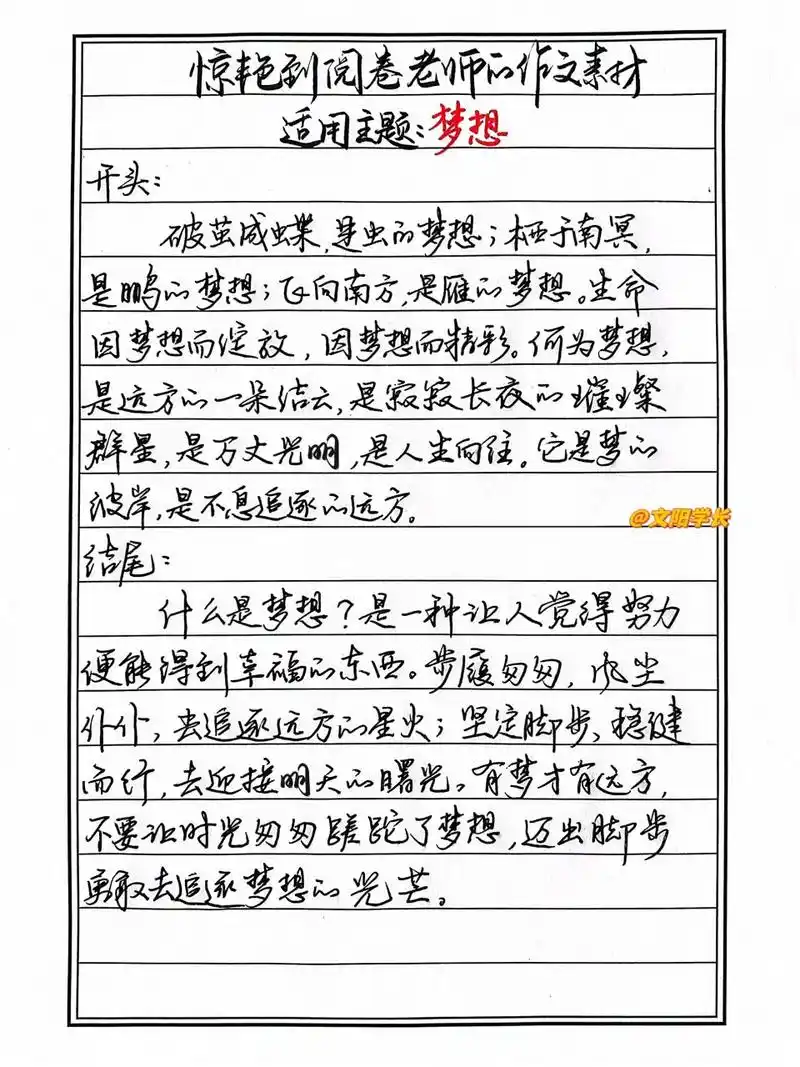 惊艳到阅卷老师的作文素材
适用主题:梦想
开头:
破茧成蝶,是虫的梦想;栖于南冥,
是鹏的梦想;飞向南方,是雁的梦想。生命
因梦想而绽放,因梦想而精彩。何为梦想,
是远方的一朵结云,是寂寂长夜的璀璨
群星,是万丈光明,是人生向往。它是梦的
彼岸,是不息追逐的远方。
@文阳学长
结尾:
什么是梦想?是一种让人觉得努力
便能得到幸福的东西。步履匆匆,风尘
仆仆,去追逐远方的星火;坚定脚步、稳健
而行,去迎接明天的曙光。有梦才有远方,
不要让时光匆匆蹉跎了梦想,迈出脚步
勇敢去追逐梦想的光芒。